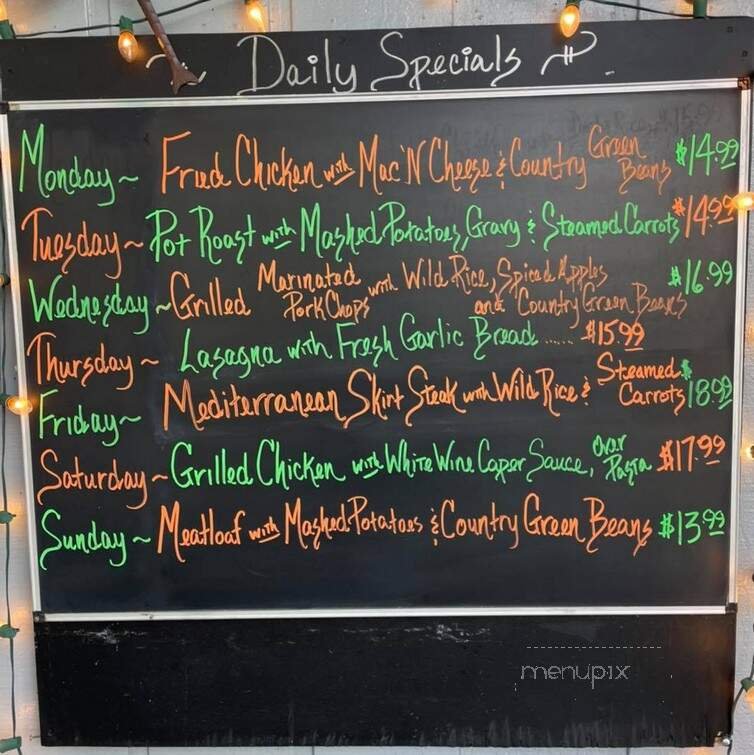 Daily Specials
Monday ~ Fried Chicken with Mac'N Cheese & Country Green Beans $14.99
Tuesday ~ Pot Roast with Mashed Potatoes, Gravy & Steamed Carrots $14.99
Wednesday ~ Grilled Marinated Pork Chops with Wild Rice, Spiced Apples and Country Green Beans $16.99
Thursday ~ Lasagna with Fresh Garlic Bread ...... $15.99
Friday ~ Mediterranean Skirt Steak with Wild Rice & Steamed Carrots $18.99
Saturday ~ Grilled Chicken with White Wine Caper Sauce, Over Pasta $17.99
Sunday ~ Meatloaf with Mashed Potatoes & Country Green Beans $13.99
menupix